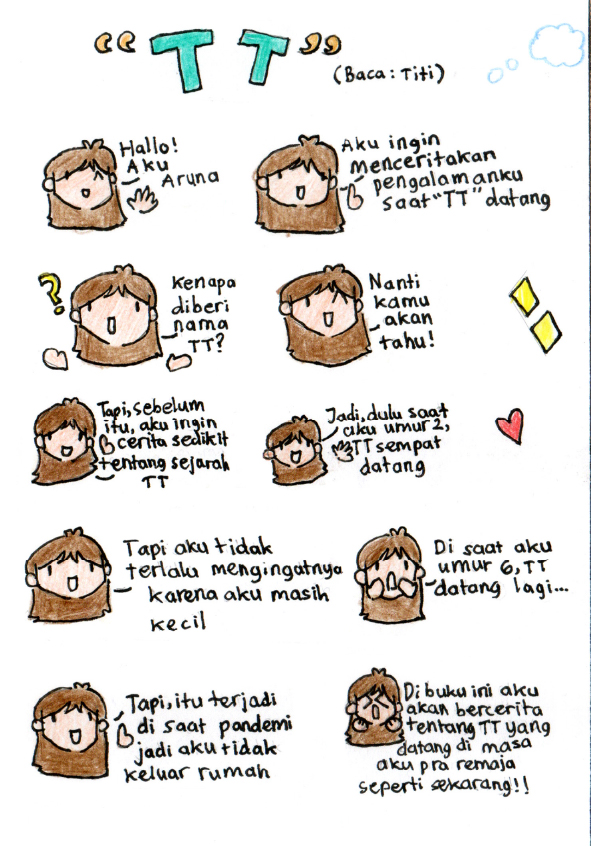 "TT"
(Baca: Titi)
Hallo!
Aku
Aruna
Aku ingin
menceritakan
pengalamanku
saat "TT" datang
?
Kenapa
diberi
nama
TT?
Nanti
kamu
akan
tahu!
Tapi, sebelum
itu, aku ingin
cerita sedikit
tentang sejarah
TT
Jadi, dulu saat
aku umur 2,
TT sempat
datang
Tapi aku tidak
terlalu mengingatnya
karena aku masih
kecil
Di saat aku
umur 6, TT
datang lagi...
Tapi, itu terjadi
di saat pandemi
jadi aku tidak
keluar rumah
Di buku ini aku
akan bercerita
tentang TT yang
datang di masa
aku pra remaja
seperti sekarang!!